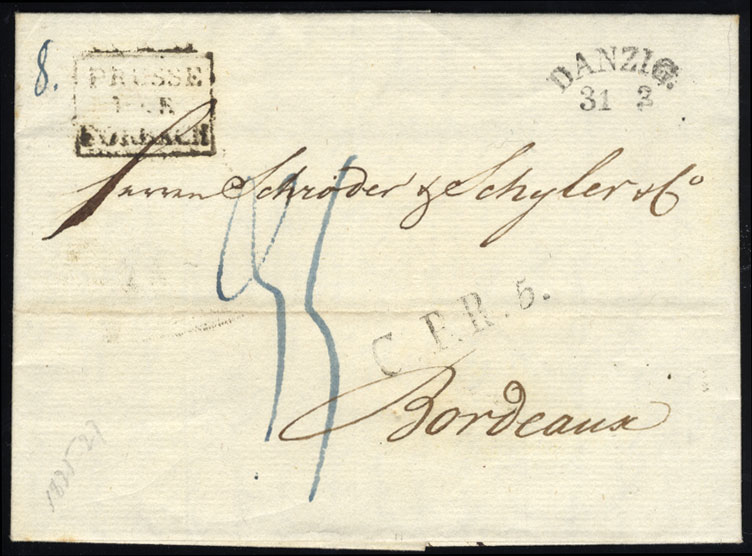 8.
PRUSSE
PAR
FORBACH
DANZIG.
31 3
Herrn Schröder & Schyler & Co
C. F. R. 5.
Bordeaux